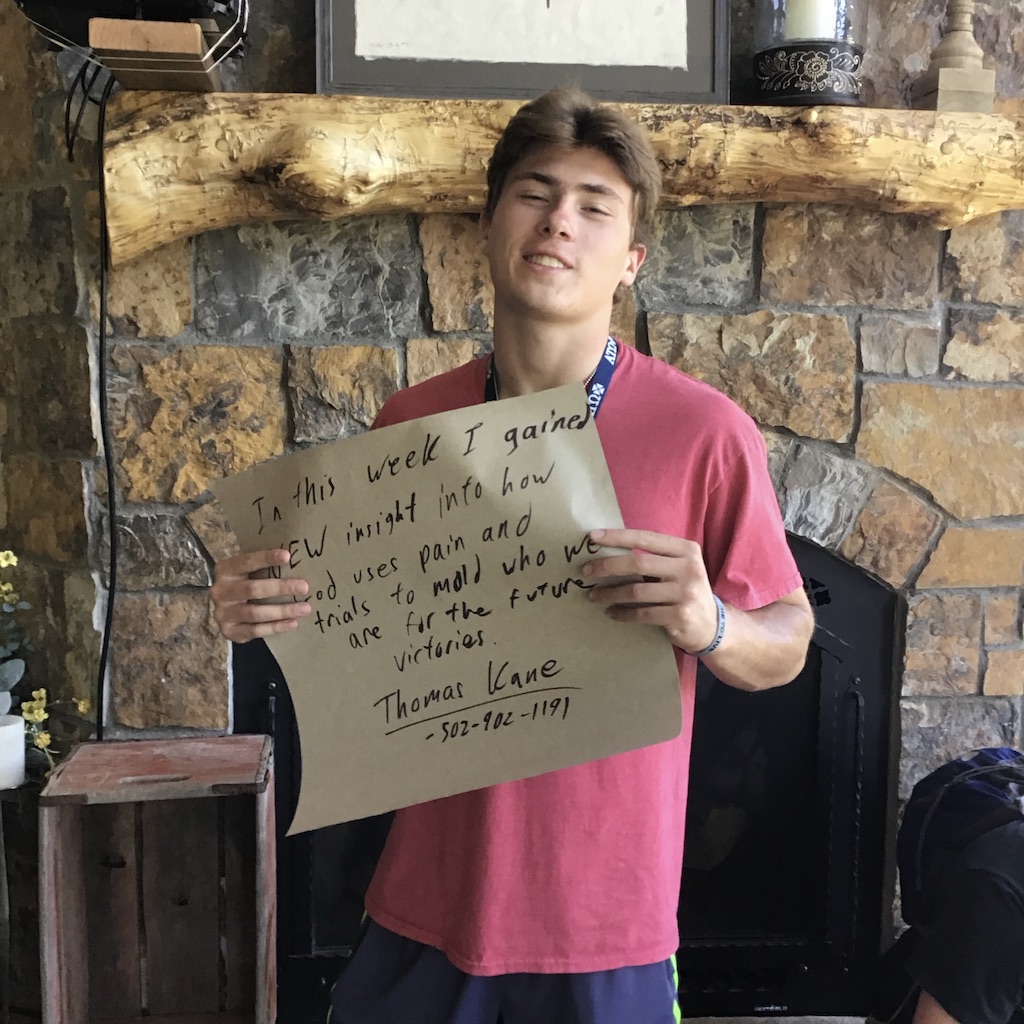 In this week I gained
NEW insight into how
God uses pain and
trials to mold who we
are for the future
victories.
Thomas Kane
-502-902-1191